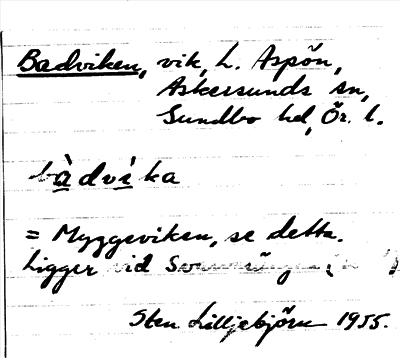 Badviken, vik, L. Aspön,
Askersunds sn,
Sundbo hd, Ör. l.
bàdvika
= Myggeviken, se detta.
Ligger vid
Sten Lilljebjörn 1955.